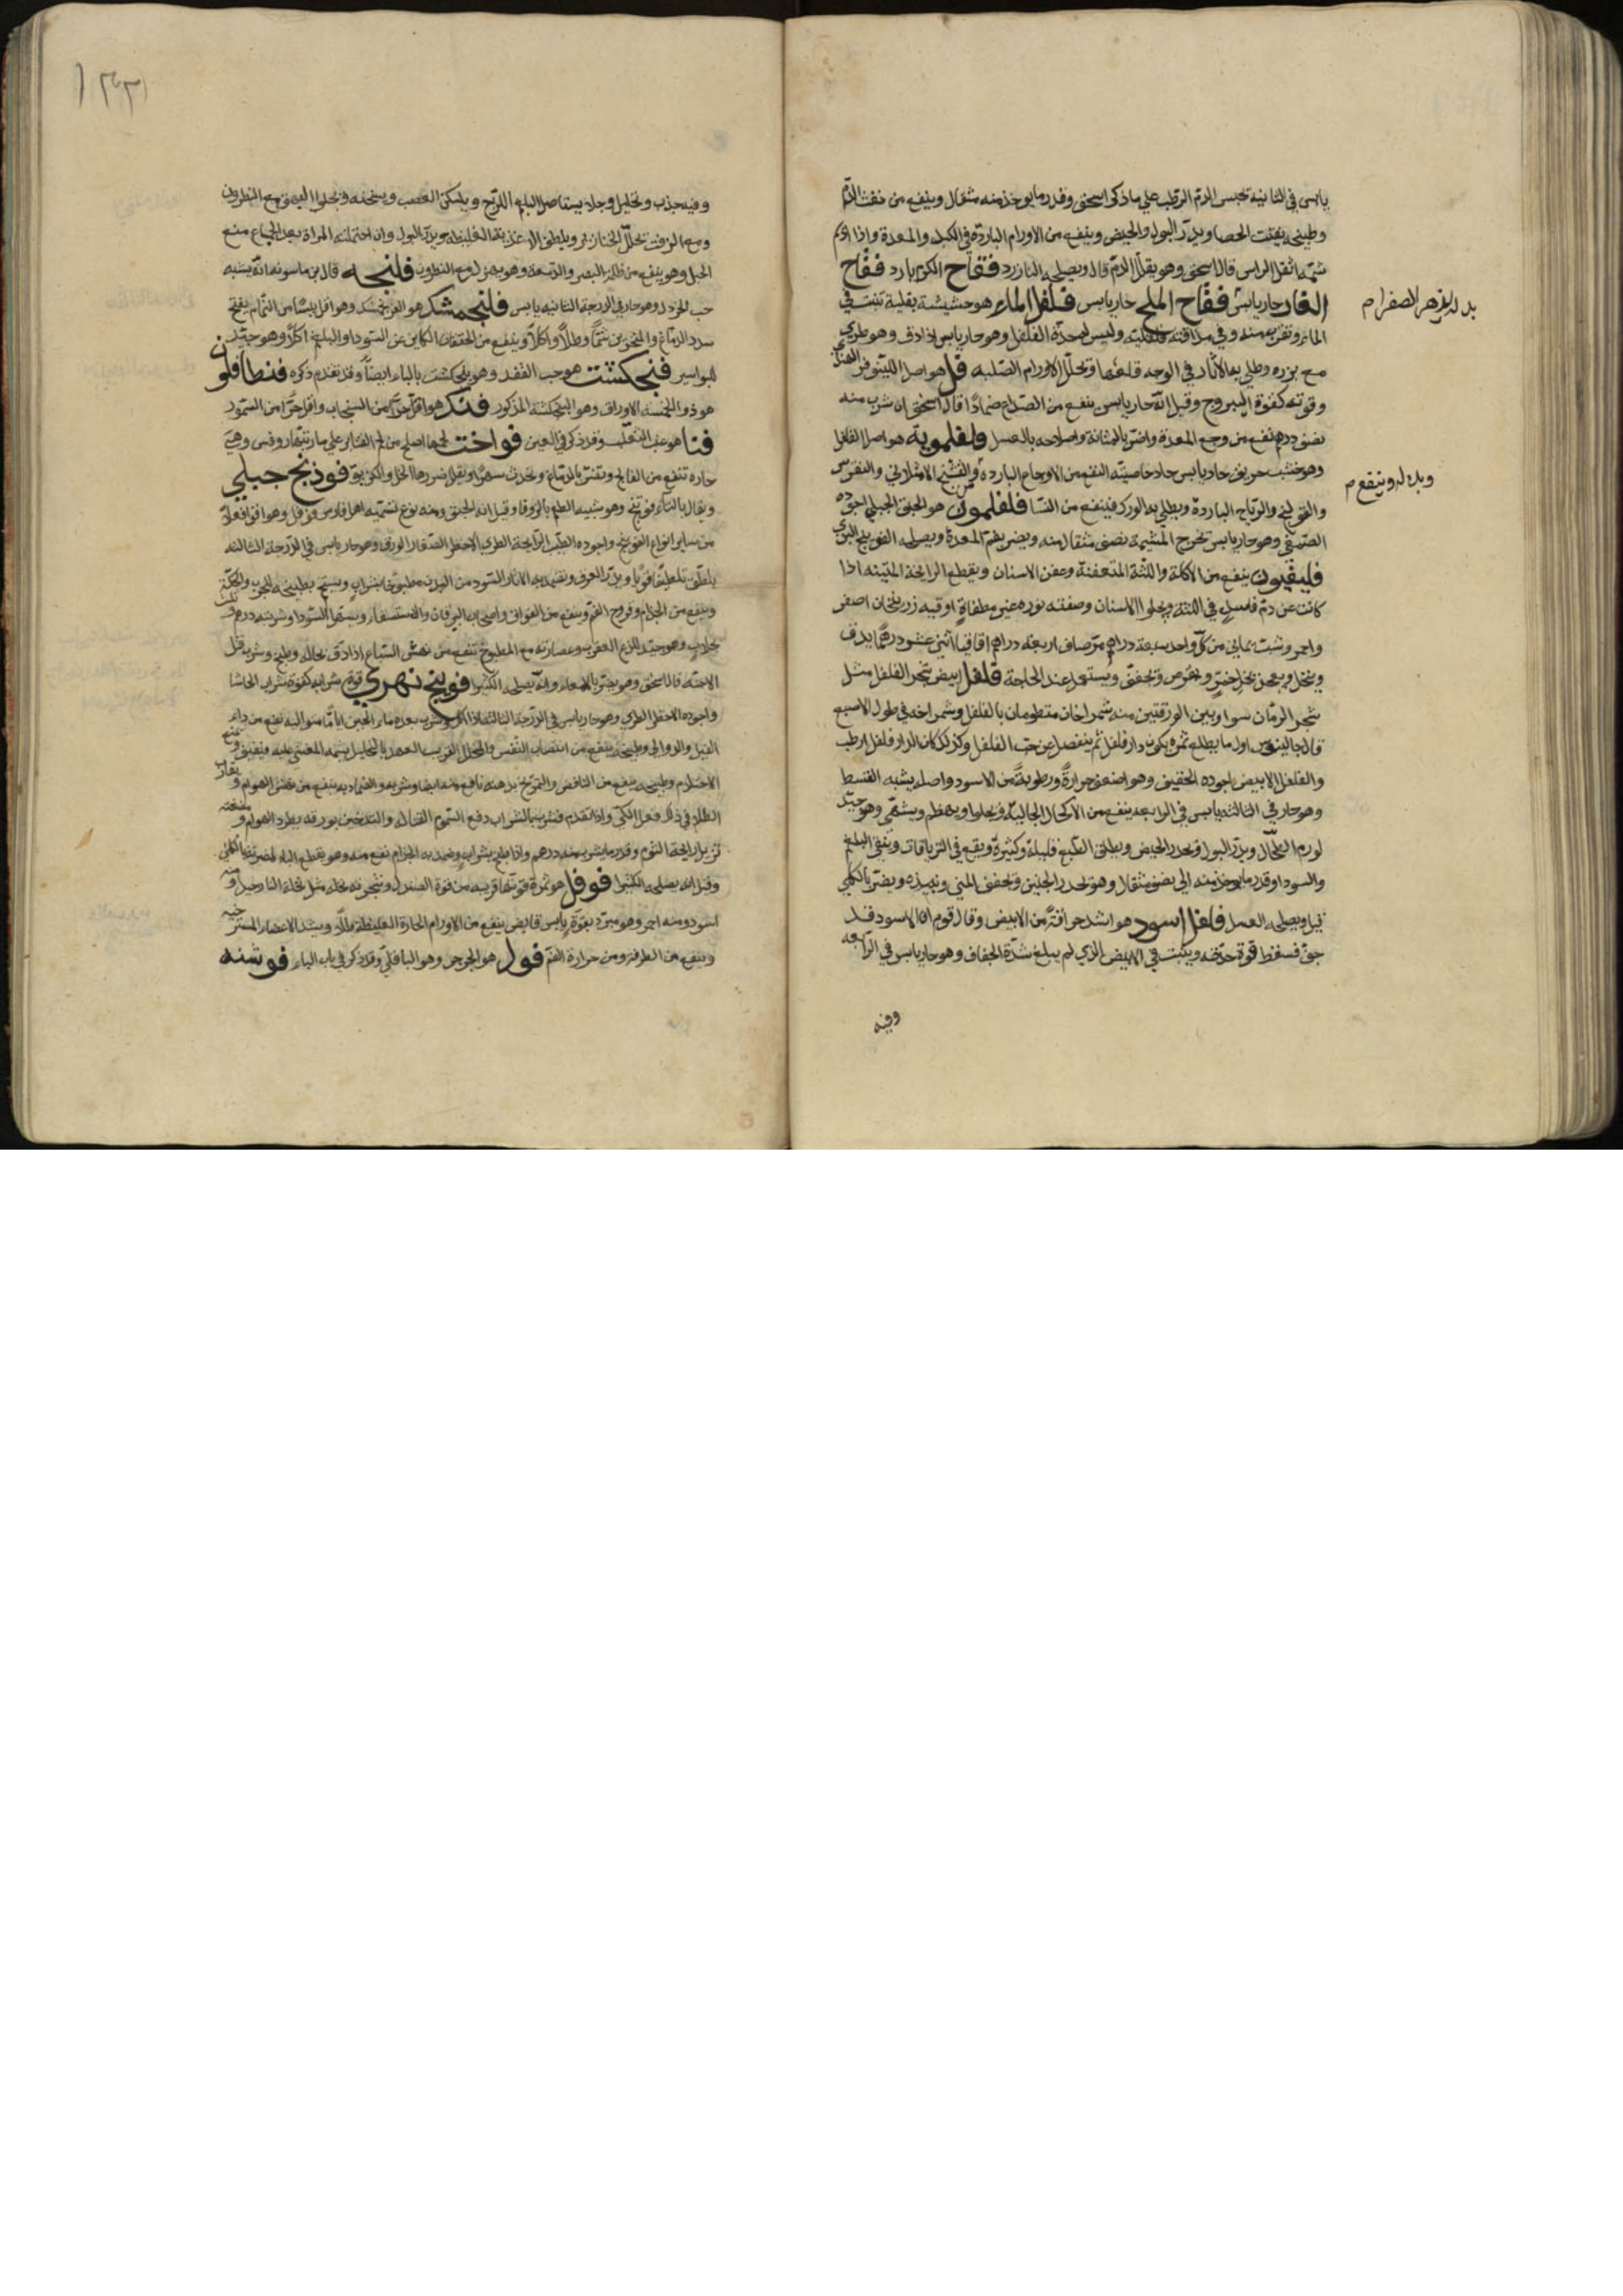 يابس في الثانية تحبس الدم الرطب على ما ذكر اسحق وقدر ما يوخذ منه مثقال وينفع من نفث الدم
وطبيخه يفتت الحصا ويدر البول والحيض وينفع من الاورام الباردة في الكبد والمعدة واذا
شمه اثقل الراس قال اسحق وهو يقل الدم قال ويصلحه فقاح الكرم بارد فقاح
حار يابس فقاح الملح حار يابس فلفل الماء هو حشيشة بقلية تنبت في
الماء وتقرب منه وفي مذاقته وليس له حدة الفلفل وهو حار يابس اذا دق وهو طري
مع بزره وطلي به الاثار في الوجه قلعها وتحلل الاورام الصلبة فل هو اصل اللينوفر الهندي
وقوته كقوة اليبروح وقيل انه حار يابس ينفع من الصداع ضمادا قال اسحق ان شرب منه
نصف درهم نفع من وجع المعدة واضر بالمثانة واصلاحه بالعسل فلفلمويه هو اصل الفلفل
وهو خشب حريف حار يابس خاصيته النفع من الاوجاع الباردة والتشنج الامتلائي والنقرس
والقولنج والرياح الباردة ويطلى به الورك فينفع من النسا فلفلمون هو الحبق الجبلي اجوده
وهو حار يابس تخرج المشيمة نصف مثقال منه ويضر بفم المعدة ويصلحه الفوينج البري
فليقيون ينفع من الاكلة واللثة المتعفنة وعفن الاسنان ويقطع الرايحة المنتنة اذا
كانت عن دم فاسد في اللثة ويجلوا الاسنان وصفته نوره غير مطفاة اوقية زرنيخان اصفر
واحمر وشب يماني من كل واحد سبعة دراهم اربعة دراهم اقاقيا اثني عشر درهما يدق
وينخل ويعجن بخل خمر ويقرص ويجفف ويستعمل عند الحاجة فلفل ابيض شجر الفلفل مثل
شجر الرمان سوا وبين الورقتين منه شمراخان منظومان بالفلفل وشمراخه في طول الاصبع
قال جالينوس اول ما يطلع ثمره يكون دار فلفل ثم ينفصل عن حب الفلفل وكذلك كان الدار فلفل ارطب
والفلفل الابيض اجوده الخفيف وهو اضعف حرارة ورطوبة من الاسود واصله يشبه القسط
وهو حار في الثالثة يابس في الرابعة ينفع من الاكحال الجالية ويجلوا ويهضم ويشهي وهو جيد
لورم الطحال ويدر البول ويحدر الحيض ويطلق الطبع قليله وكثيره ويقع في الترياقات وينقي البلغم
والسودا وقدر ما يوخذ منه الى نصف مثقال وهو يحدر الجنين ويجفف المني ويبيده ويضر بالكلى
ويصلحه العسل فلفل اسود هو اشد حرافة من الابيض وقال قوم ان الاسود قد
جف فسقط قوة حدته ويثبت في الابيض الذي لم يبلغ شدة الجفاف وهو حار يابس في الرابعة
وفيه
وبدله وينفع م
وفيه جذب وتحليل وجلا يستاصل البلغم اللزج ويسكن العصب ويسخنه ويجلوا البهق مع النطرون
ومع الزفت تحلل الخنازير ويلطف الاغذية الغليظة ويدر البول وان احتملته المراة بعد الجماع منع
الحبل وهو ينفع من ظلمة البصر والدمعة وهو يهزل مع النطرون فلنجه قال بن ماسويه انه يشبه
حب الخردل وهو حار في الدرجة الثانية يابس فلنجمشك هو الفرنجمشك وهو اقل يبسا من النمام يفتح
سدد الدماغ والمنخرين شما وطلا واكلا وينفع من الخفقان الكاين عن السودا والبلغم اكلا وهو جيد
للبواسير فنجكشت هو حب الفقد وهو بنجكشت بالباء ايضا وقد تقدم ذكره فنطافلون
هو ذو الخمسة الاوراق وهو البنجكشت المذكور فنك هو اقل حرا من السنجاب واقل حرا من السمور
فنا هو عنب الثعلب وقد ذكر في العين فواخت لحمها اصلح من لحم على ما رتبه روفس وهي
حارة تنفع من الفالج وتضر بالدماغ وتحدث سهرا ويقل ضررها الخل والكزبرة فوذنج جبلي
ويقال بالتاء فوتنج وهو شبيه الطعم بالزوفا وقيل انه الحبق ومنه نوع تسميه اهل فارس وهو اقوى افعالا
من ساير انواع الفوينج واجوده الطيب الرايحة الطري الاخضر الصغار الورق وهو حار يابس في الدرجة الثالثة
يلطف تلطيفا قويا ويدر العرق وتضمد به الاثار السود من البدن مطبوخا بشراب ويستحم بطبيخه للجرب والحكة
وينفع من الجذام وقروح الفم وينفع من الفواق واصحاب اليرقان والاستسقا ويسهل السودا وشربته درهم
بجلاب وهو جيد للدغ العقرب وعصارته مع المطبوخ تنفع من نهش السباع اذا دق بحاله وطبخ وشربه قتل
الاجنة قال اسحق وهو يضر بالامعاء وانه يصلحه الكثيرا فوينج نهري قوة شرابه كقوة شراب الحاشا
واجوده الاخضر الطري وهو حار يابس في الدرجة الثالثة اذا اكل وشرب بعده ماء الجبن اياما متوالية نفع من داء
الفيل والدوالي وطبيخه ينفع من انتصاب النفس
الاحتلام وطبيخه ينفع من النافض والتمريخ بدهنه نافع من
والتدخين بورقه يطرد الهوام
تزيل رايحة الثوم وقدر ما يشرب منه درهم واذا طبخ بشراب وضمد به الجذام نفع منه وهو يقطع الباه لمضرته بالكلى
وقيل انه يصلحه الكثيرا فوفل هو ثمرة قوتها قريبة من قوة الصندل وشجرته نخلة مثل نخلة النارجيل
اسود ومنه احمر وهو مبرد بقوة يابس قابض ينفع من الاورام الحارة الغليظة طلاء ويشد الاعضاء المسترخية
وينفع من الطرفة ومن حرارة الفم فول هو الجرجر وهو الباقلي وقد ذكر في باب الباء فوشنه